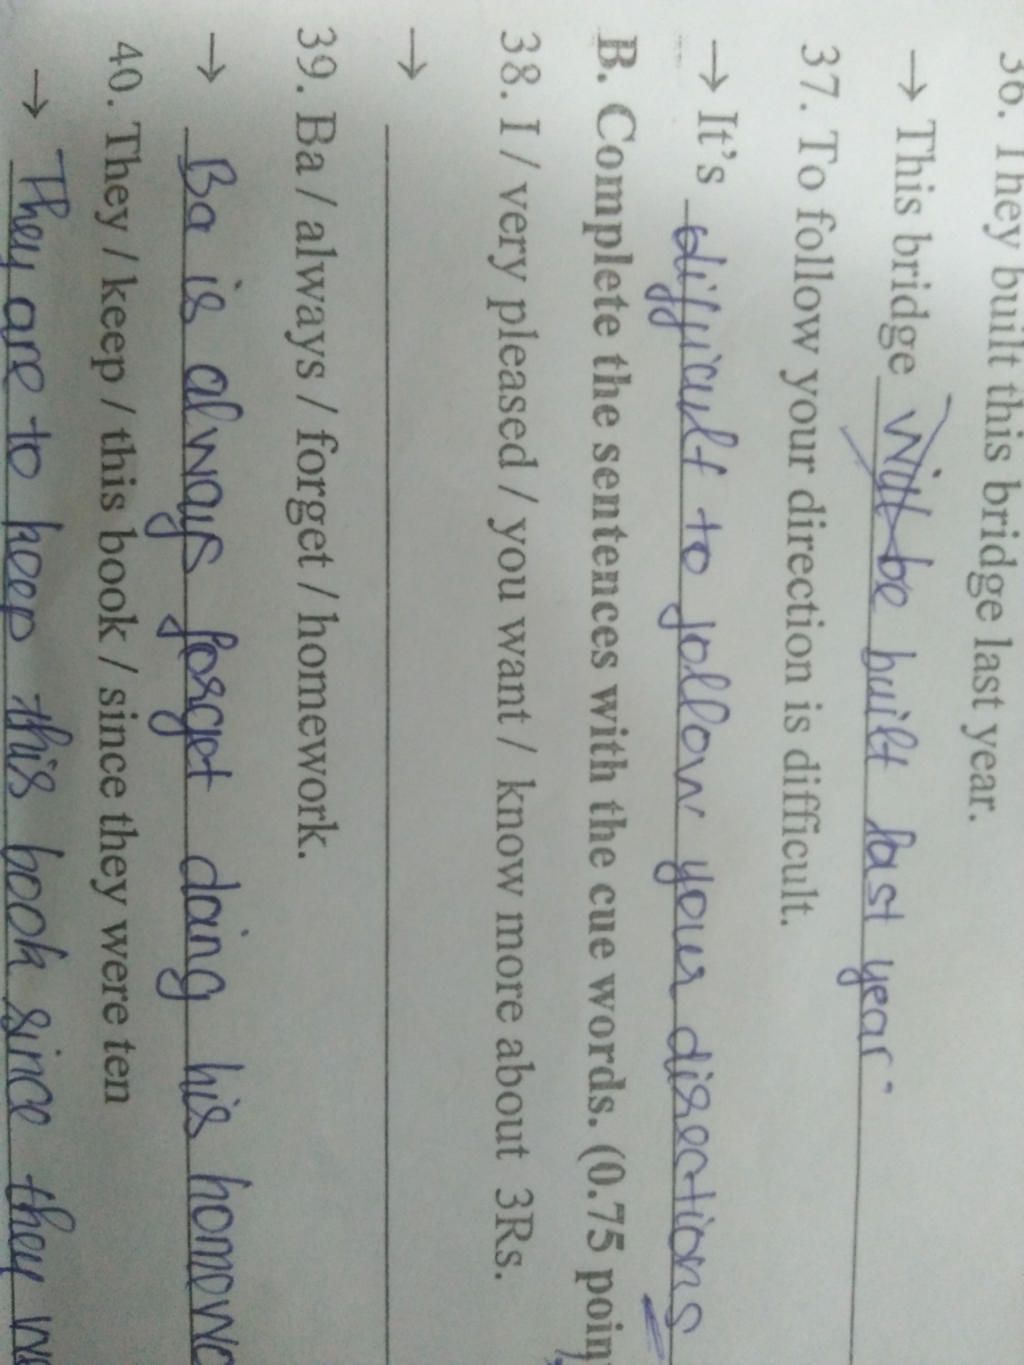 36. They built this bridge last year.
→ This bridge will be built last year.
37. To follow your direction is difficult.
→ It's difficult to follow your directions
B. Complete the sentences with the cue words. (0.75 poin
38. I / very pleased / you want / know more about 3Rs.
→
39. Ba / always / forget / homework.
→ Ba is always forget doing his homewo
40. They / keep / this book / since they were ten
→ They are to keep this book since they we